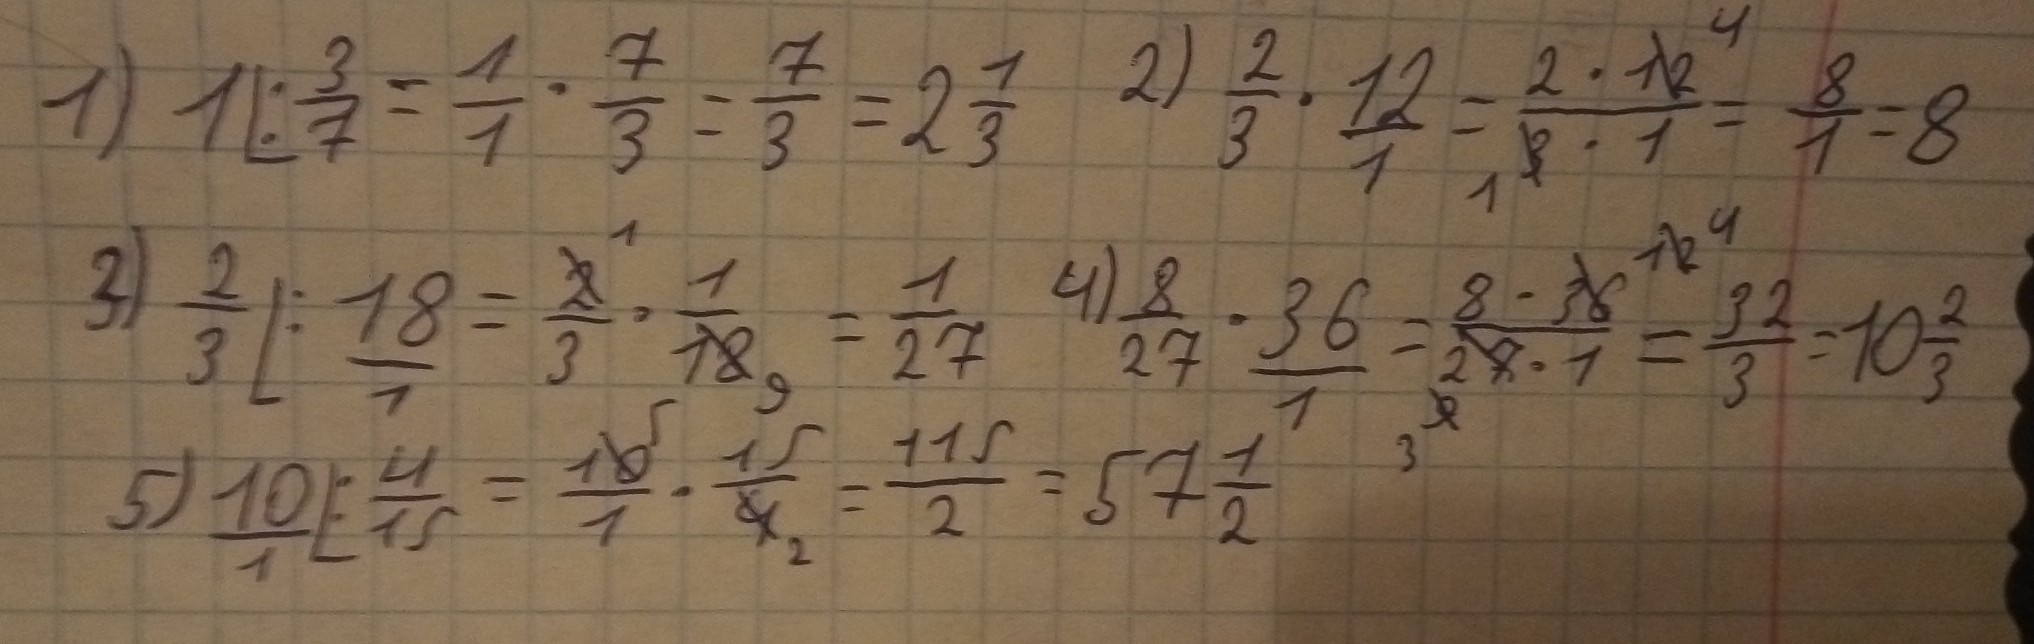 1) 1 : 3/7 = 1/1 · 7/3 = 7/3 = 2 1/3 2) 2/3 · 12/1 = 2 · 12 4/1 3 · 1 = 8/1 = 8
3) 2/3 : 18/1 = 2 1/3 · 1/18 9 = 1/27 4) 8/27 · 36/1 = 8 · 36 12 4/27 9 3 · 1 = 32/3 = 10 2/3
5) 10/1 : 4/15 = 10 5/1 · 15/4 2 = 115/2 = 57 1/2